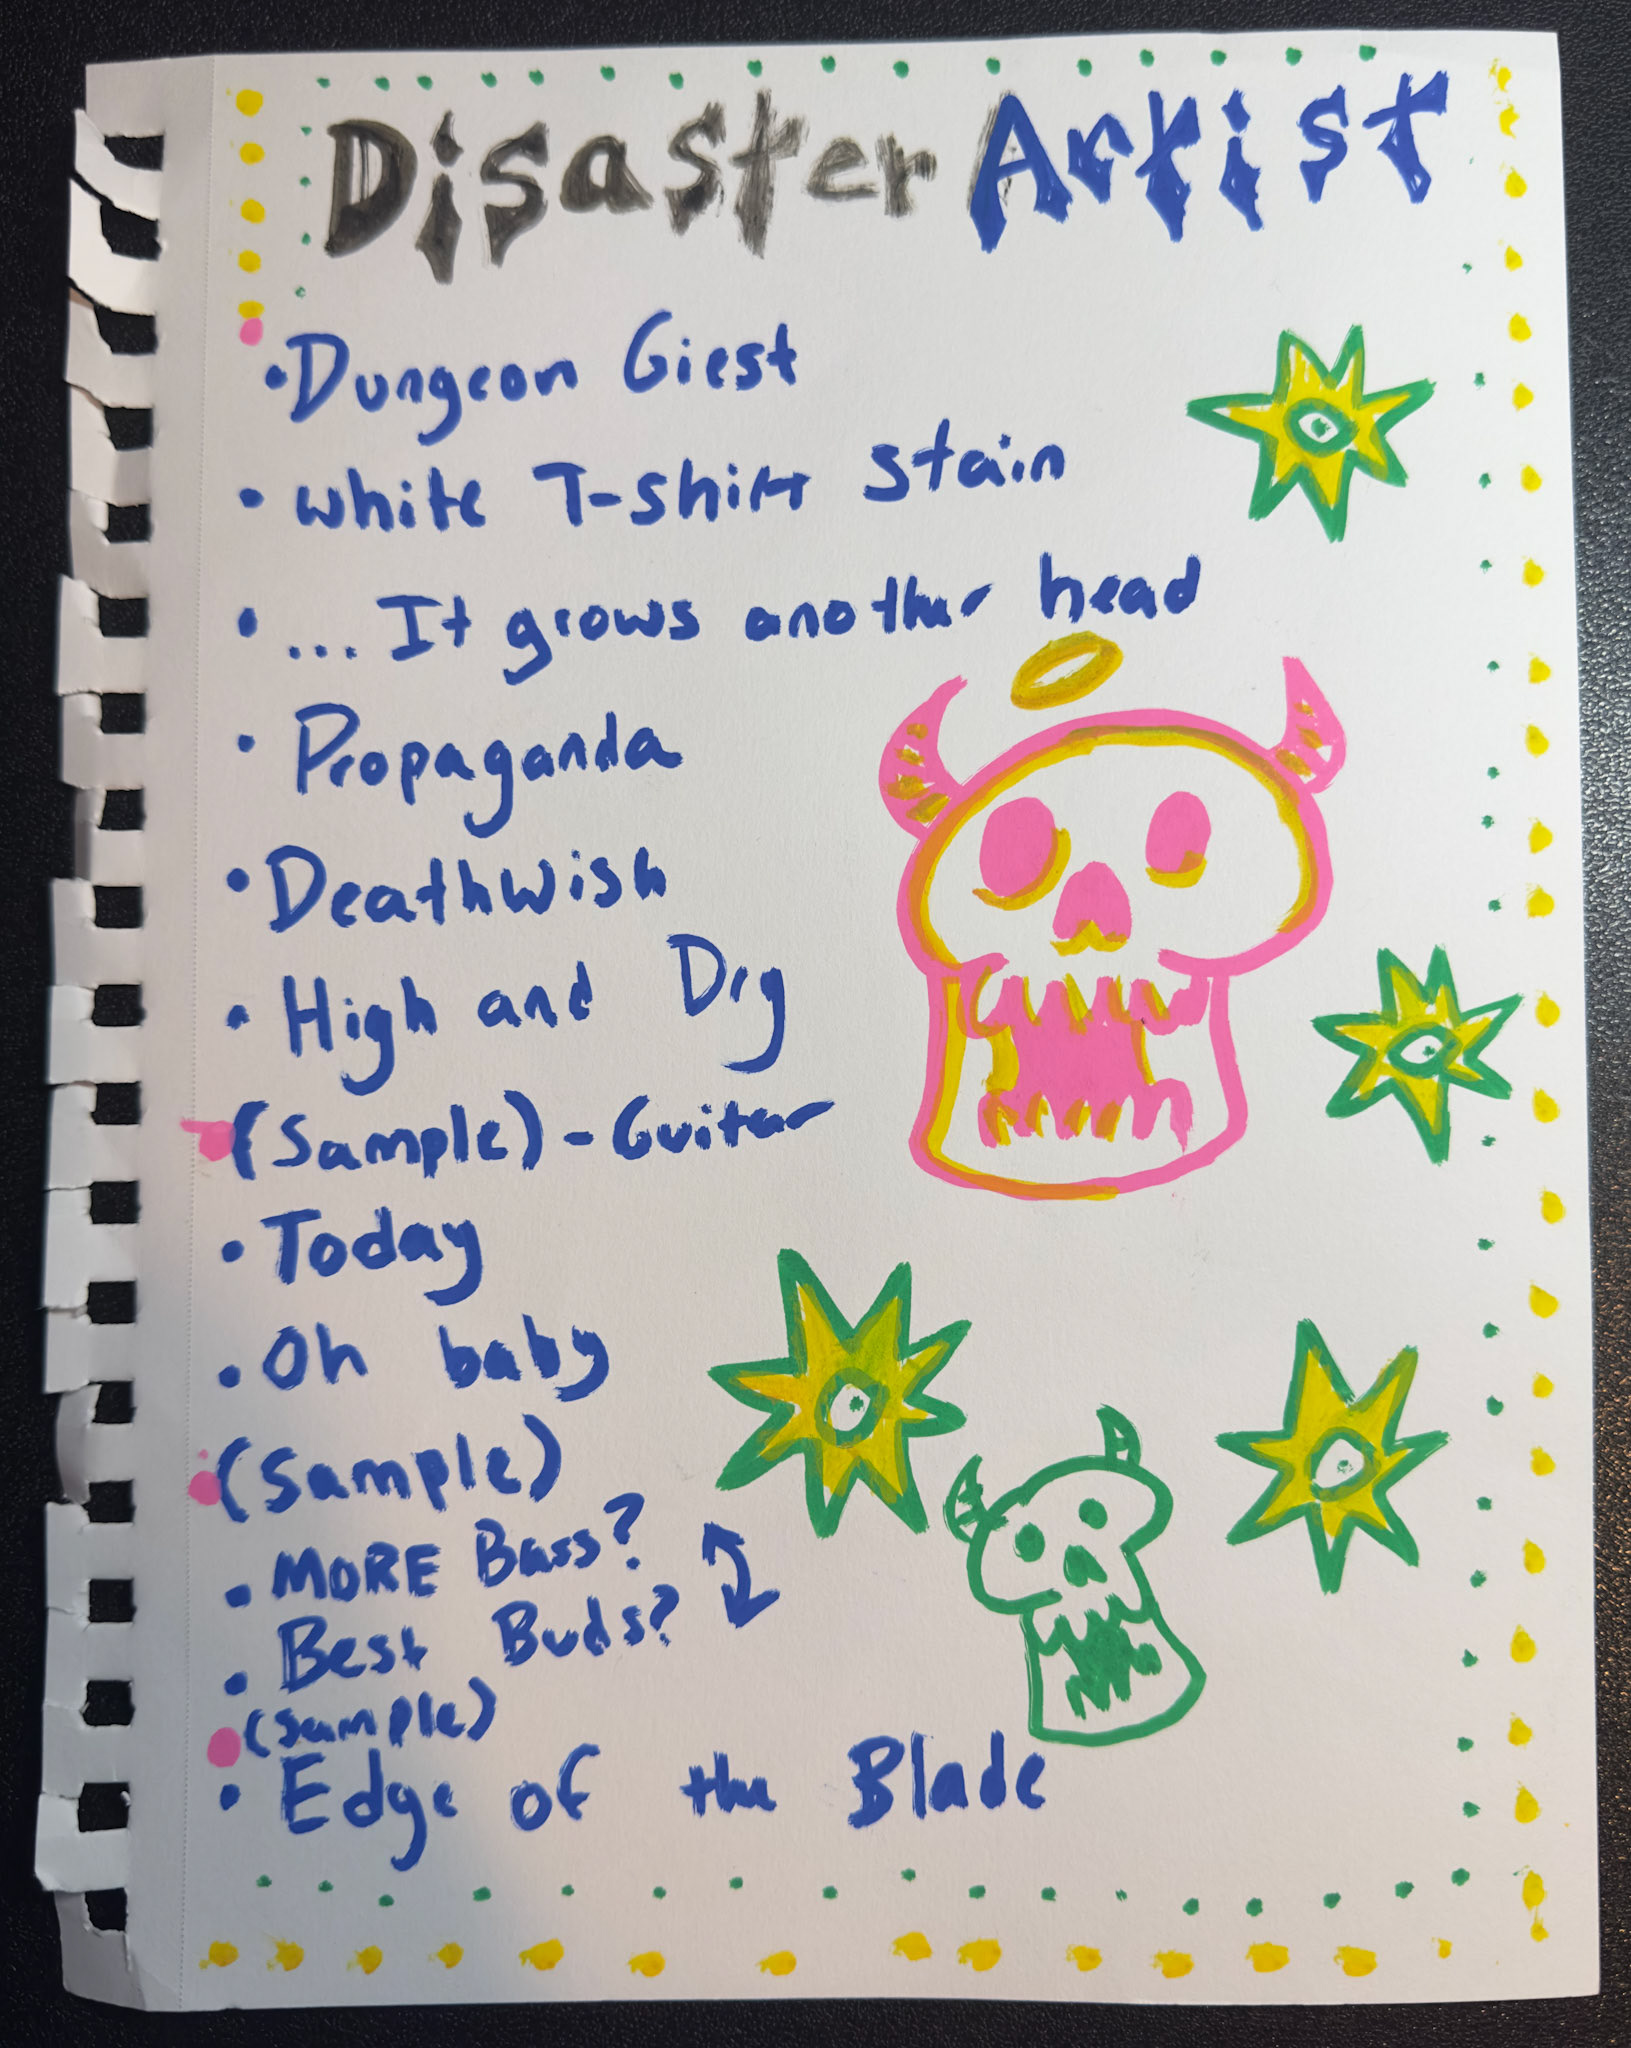 Disaster Artist
• Dungeon Giest
• White T-shirt stain
• ... It grows another head
• Propaganda
• Deathwish
• High and Dry
(Sample) - Guitar
• Today
• Oh baby
(Sample)
• MORE Bass?
• Best Buds?
(Sample)
• Edge of the Blade